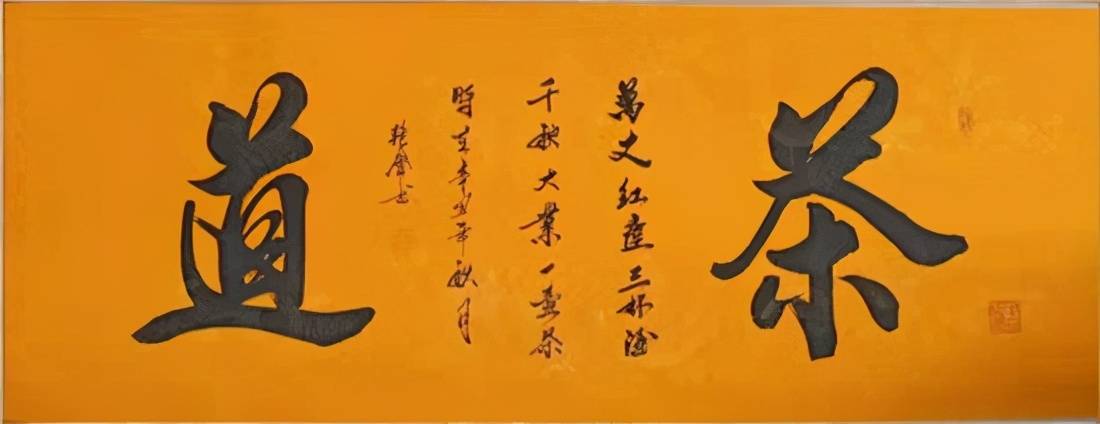 茶
萬丈紅塵三杯酒
千秋大業一壺茶
時在辛丑年秋月
書
道